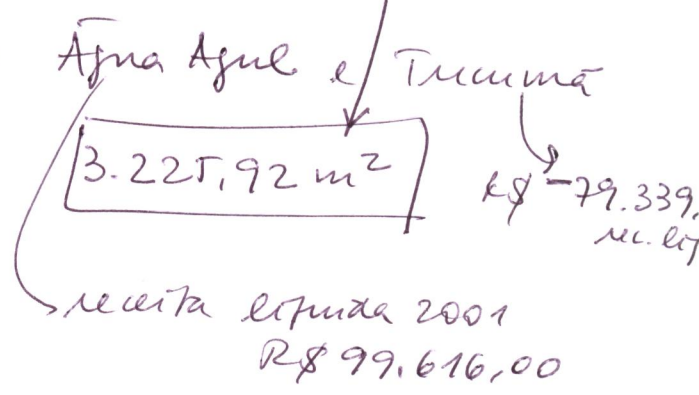 Água Azul e Tucumã
3.225,92 m²
R$ -79.339,
rec. líq
receita líquida 2001
R$ 99.616,00